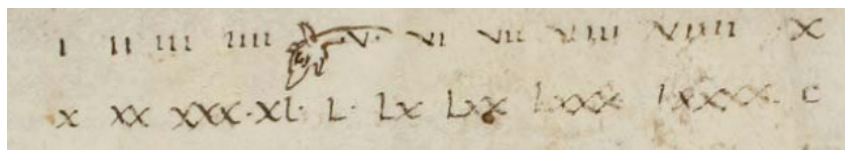 I II III IIII ·V· VI VII VIII VIIII X
X XX XXX·XL· L· LX LXX LXXX LXXXX C